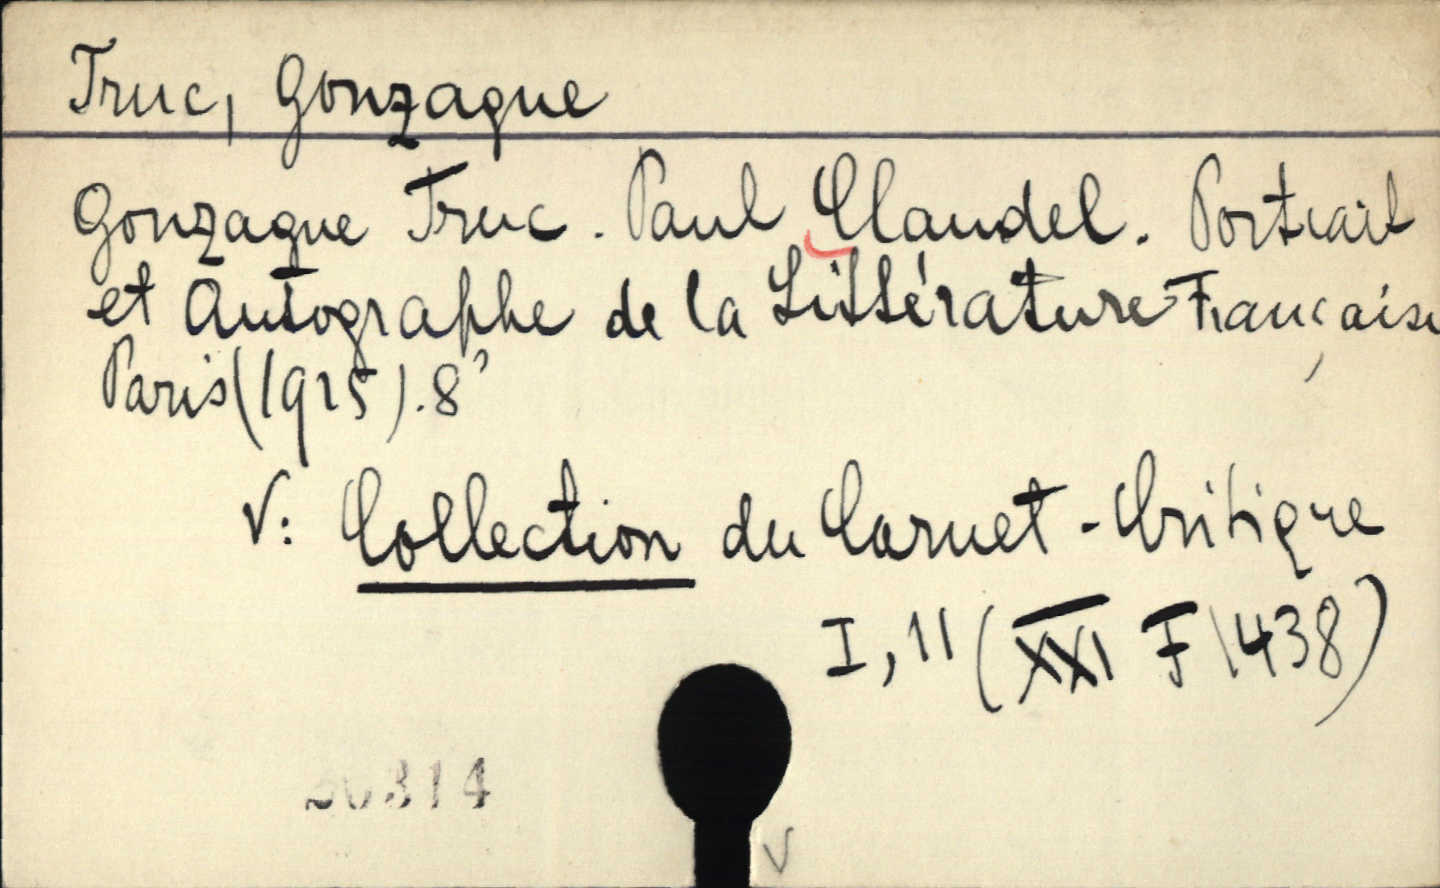 Truc, Gonzague
Gonzague Truc. Paul Claudel. Portrait
et Autographe de la Littérature Française
Paris (1925). 8°
V: Collection du Carnet-Critique
I, 11 (XXI F 1438)
20314
V